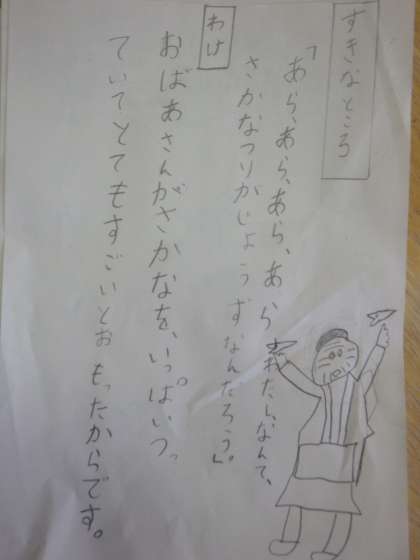 すきなところ
「あら、あら、あら、あ、ら
わたしなんて、
さかなつりがじょうずなんだろう。」
わけ
おばあさんがさかなを、いっぱいつっ
ていてとてもすごいとおもったからです。